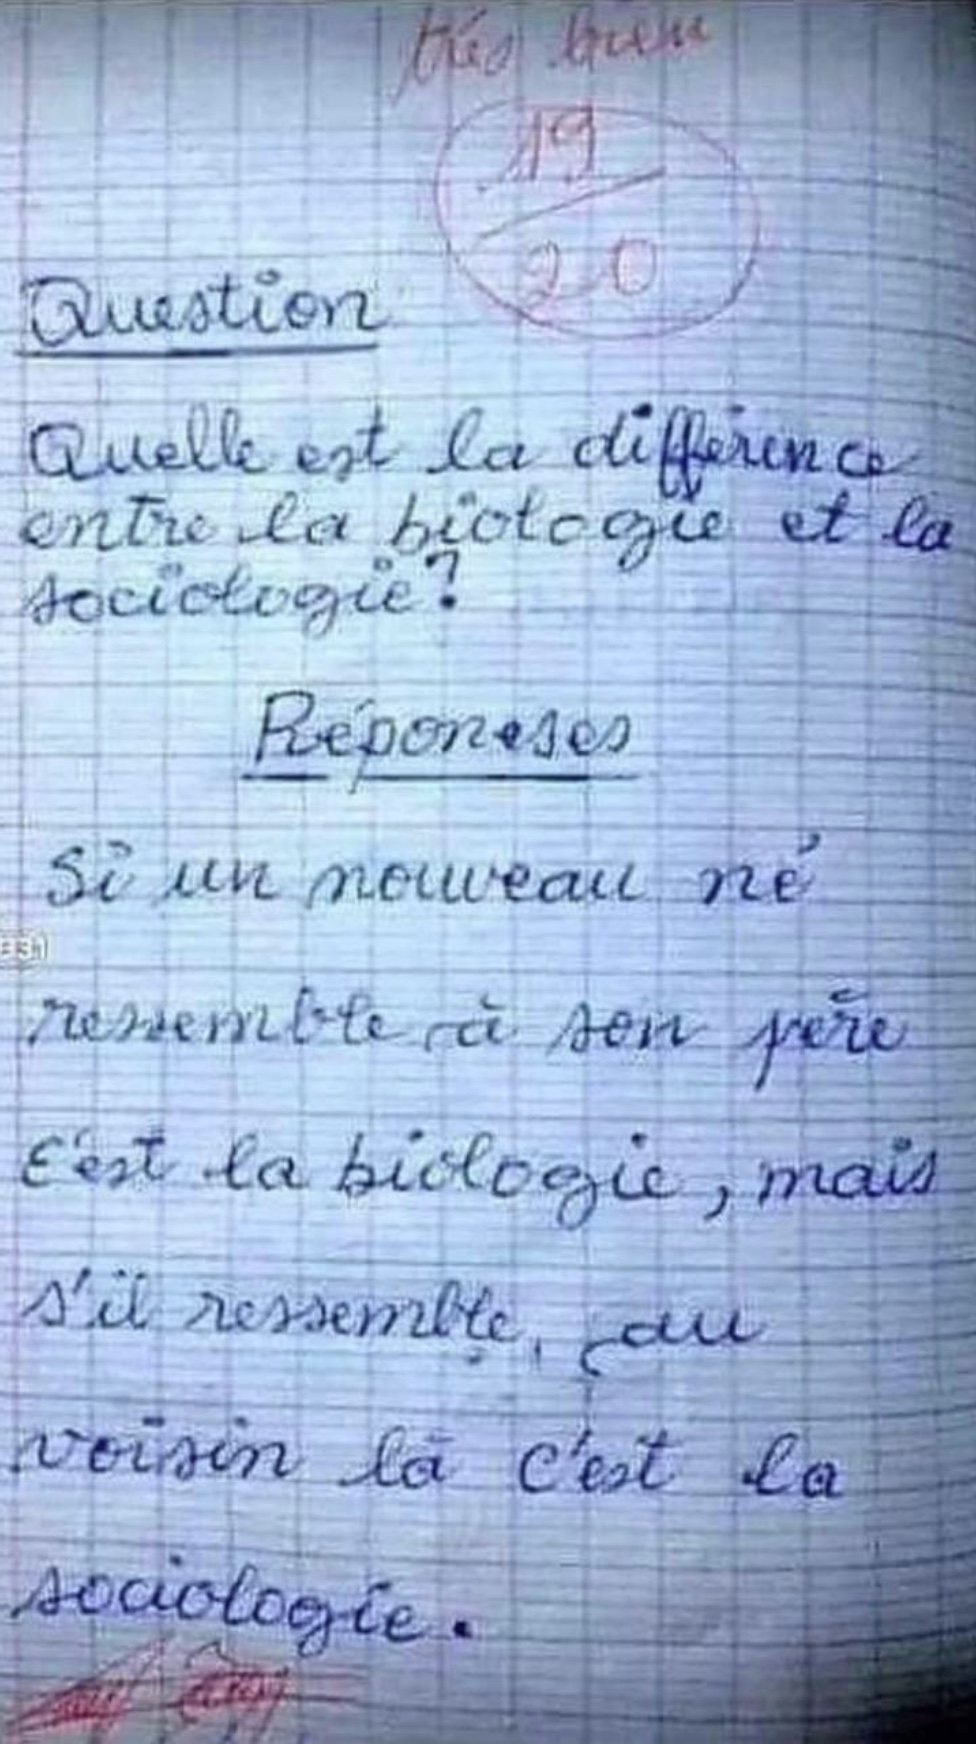 très bien
19
20
Question
Quelle est la différence
entre la biologie et la
sociologie?
Réponses
Si un nouveau né
ressemble à son père
c'est la biologie, mais
s'il ressemble, au
voisin là c'est la
sociologie.